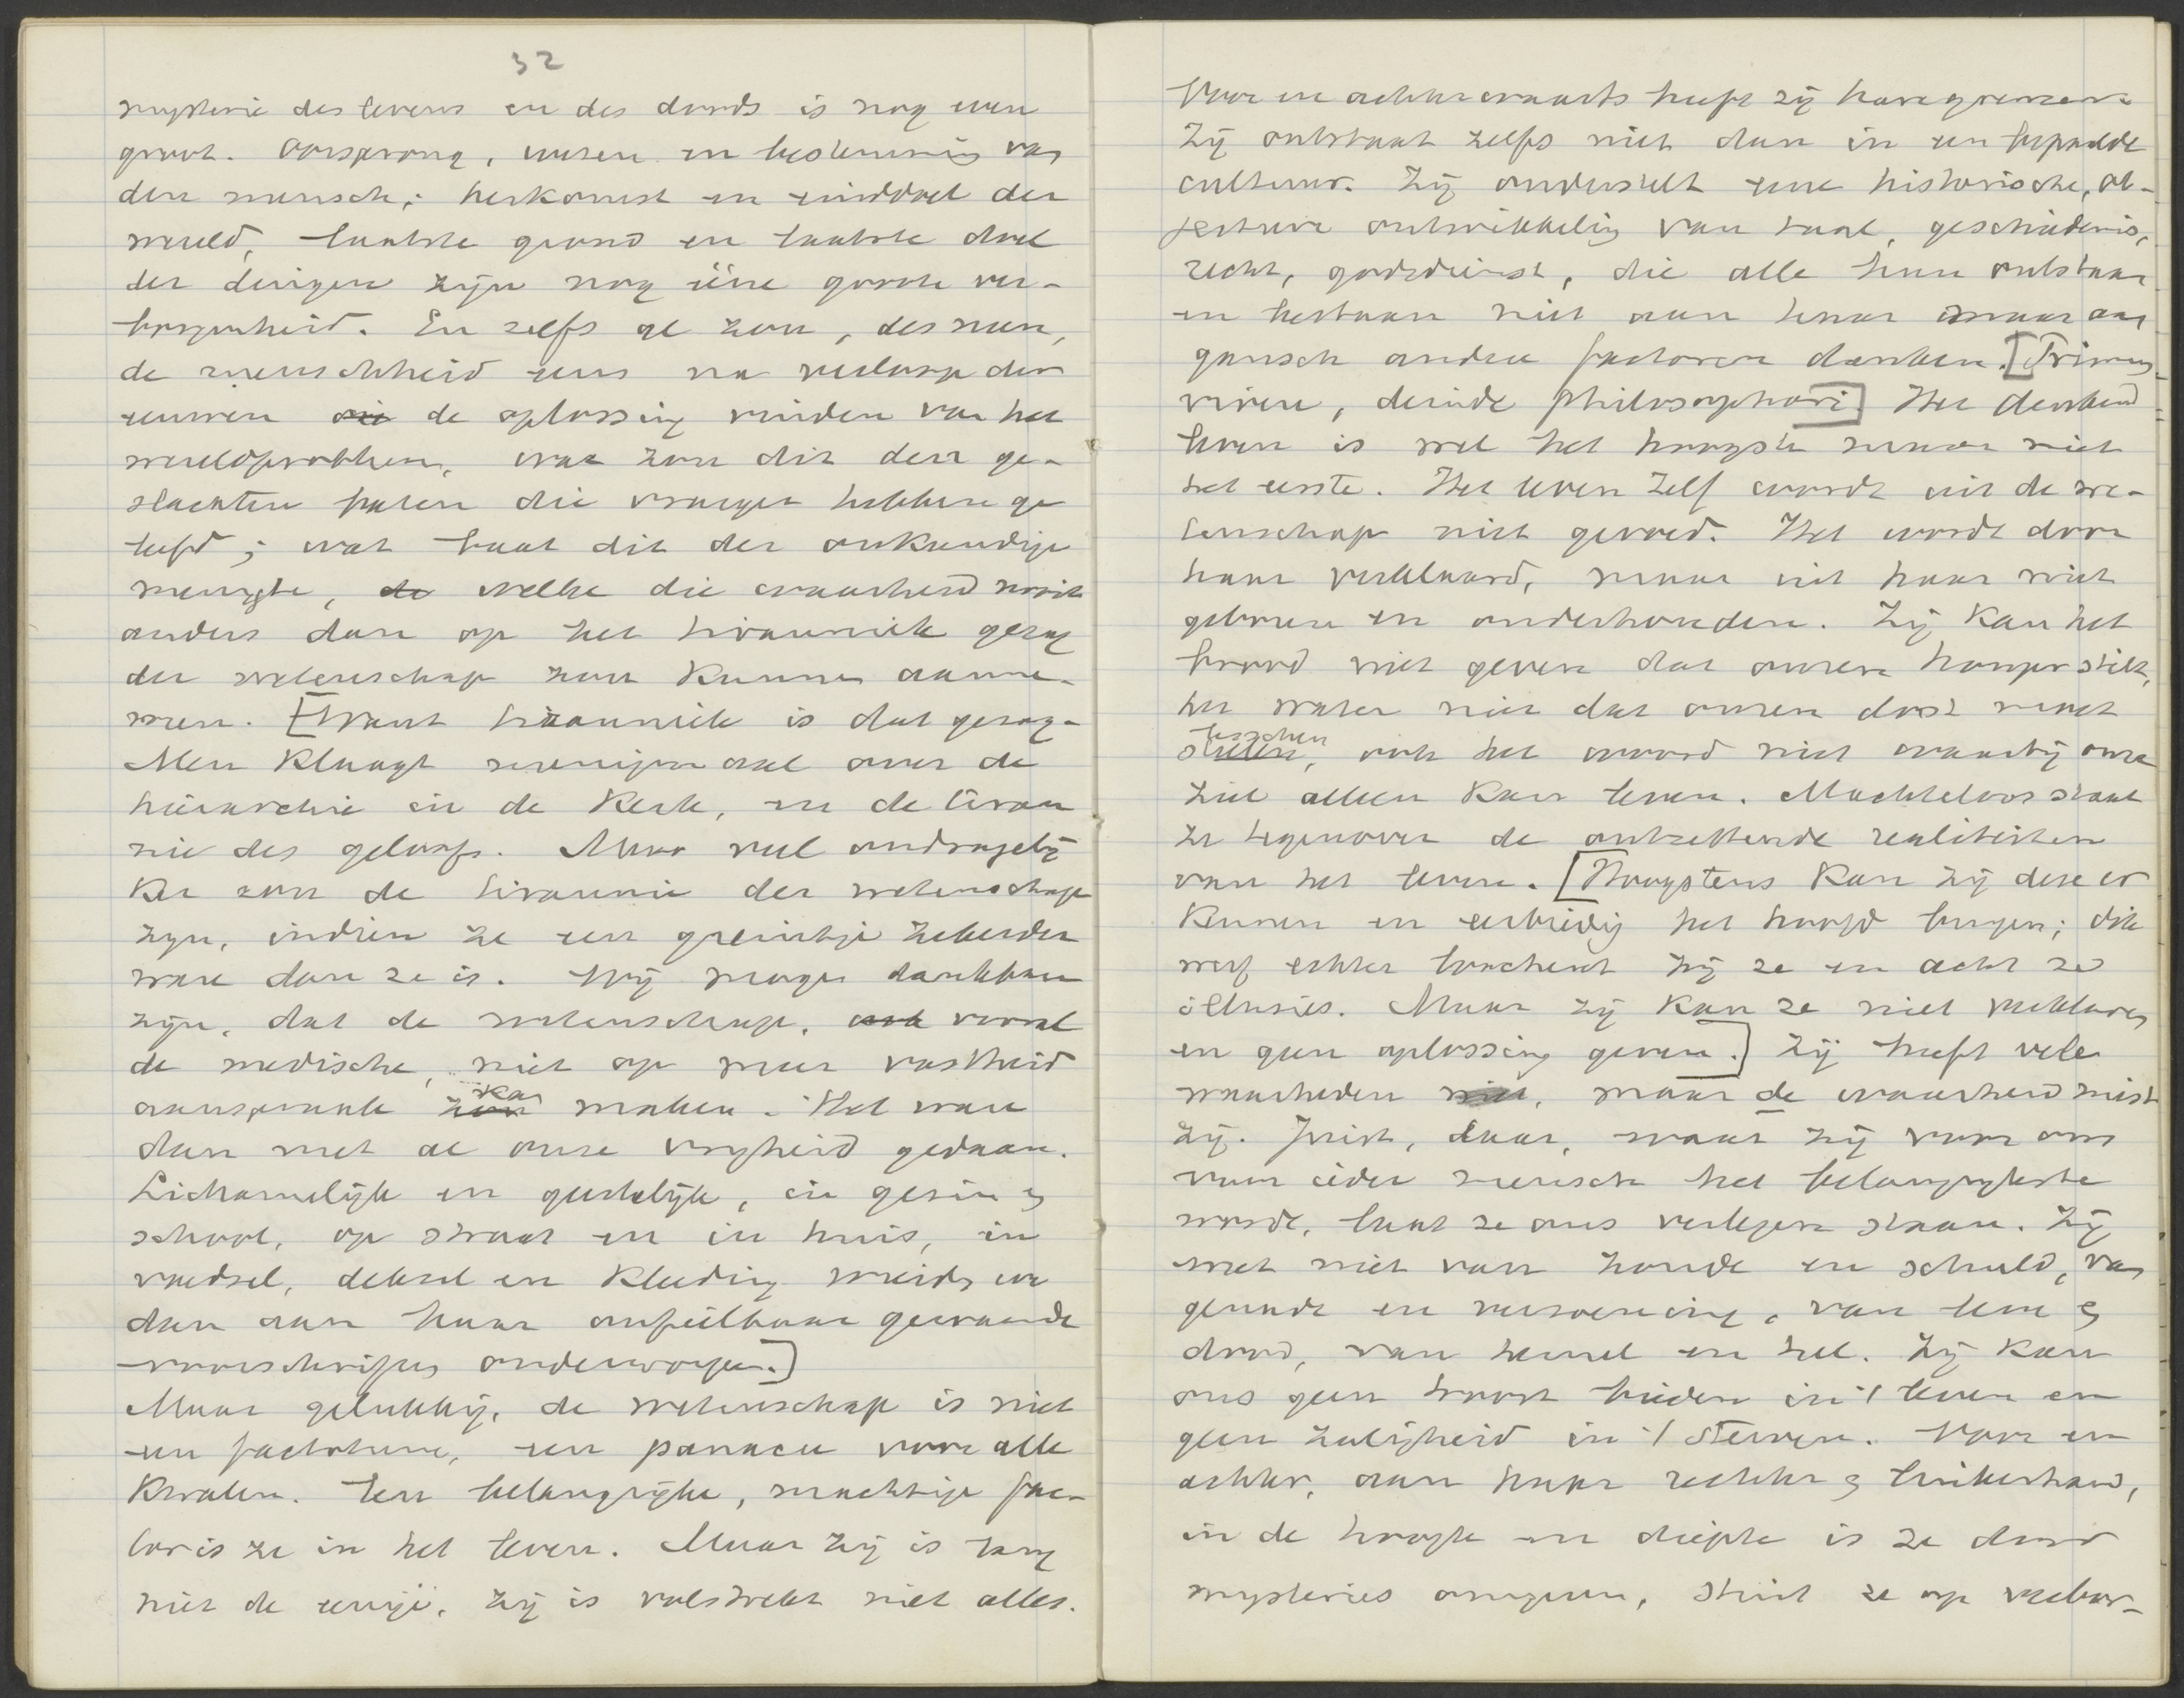 32
mysterie des levens en des doods is nog even
groot. Oorsprong, wezen en bestemming van
den mensch; herkomst en einddoel der
wereld, laatste grond en laatste doel
der dingen zijn nog ééne groote ver-
borgenheid. En zelfs al zou, des neen,
de menschheid eens na verloop der
eeuwen de oplossing vinden van het
wereldprobleem, wat zou dit den ge-
slachten baten die vroeger hebben ge
leefd; wat baat dit der onkundige
menigte, de welke die waarheid nooit
anders dan op het tirannieke gezag
der wetenschap zou kunnen aanne-
men. [Want tiranniek is dat gezag.
Men klaagt menigmaal over de
hiërarchie in de Kerk, en de tiran
nie des geloofs. Maar veel ondragelij
ker zou de tirannie der wetenschap
zijn, indien ze een greintje zekerder
ware dan ze is. Wij mogen dankbaar
zijn, dat de wetenschap, vooral
de medische, niet op meer vastheid
aanspraak zou kan maken. Het ware
dan met al onze vrijheid gedaan.
Lichamelijk en geestelijk, in gezin en
school, op straat en in huis, in
voedsel, deksel en kleeding werden we
dan aan haar onfeilbaar gewaande
voorschriften onderworpen.]
Maar gelukkig, de wetenschap is niet
een factotum, een panacee voor alle
kwalen. Een belangrijke, machtige fac-
tor is ze in het leven. Maar zij is lang
niet de eenige, zij is volstrekt niet alles.
Voor en achterwaarts heeft zij hare grenzen.
Zij ontstaat zelfs niet dan in een bepaalde
cultuur. Zij onderstelt eene historische, ob-
jectieve ontwikkeling van taal, geschiedenis,
recht, godsdienst, die alle hun ontstaan
en bestaan niet aan haar maar aan
gansch andere factoren danken. [Primum
vivere, deinde philosophari] Het denkend
leven is wel het hoogste maar niet
het eerste. Het leven zelf wordt uit de we-
tenschap niet gevoed. Het wordt door
haar verklaard, maar uit haar niet
geboren en onderhouden. Zij kan het
brood niet geven dat onzen honger stilt,
het water niet dat onzen dorst moet
stillen lesschen, ook het woord niet waarbij onze
ziel alleen kan leven. Machteloos staat
ze tegenover de ontzettende realiteiten
van het leven. [Hoogstens kan zij deze er
kennen en eerbiedig het hoofd buigen; dik
werf echter loochent zij ze en acht ze
illusies. Maar zij kan ze niet verklaren
en geen oplossing geven.] Zij heeft vele
waarheden, maar de waarheid mist
zij. Juist, daar, waar zij voor ons
voor ieder mensch het belangrijkste
wordt, laat ze ons verlegen staan. Zij
weet niet van zonde en schuld, van
genade en verzoening, van leven en
dood, van hemel en hel. Zij kan
ons geen troost bieden in 't leven en
geen zaligheid in 't sterven. Voor en
achter, aan haar rechter en linkerhand,
in de hoogte en diepte is ze door
mysteries omgeven, stuit ze op verbor-